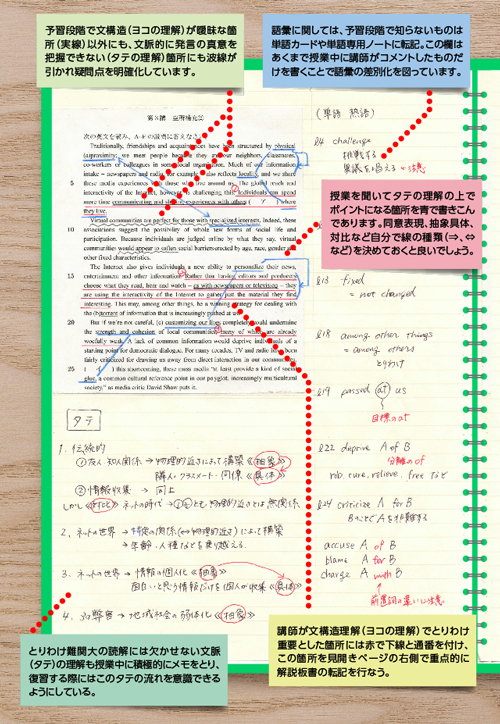 予習段階で文構造(ヨコの理解)が曖昧な箇
所(実線)以外にも、文脈的に発言の真意を
把握できない(タテの理解)箇所にも波線が
引かれ疑問点を明確化しています。
語彙に関しては、予習段階で知らないものは
単語カードや単語専用ノートに転記。この欄は
あくまで授業中に講師がコメントしたものだ
けを書くことで語彙の差別化を図っています。
次の英文を読み、A~Eの設問に答えなさい。
Traditionally, friendships and acquaintances have been structured by physical
(a)proximity: we meet people because they are our neighbors, classmates,
co-workers or colleagues in some local organization. Much of our information
intake – newspapers and radio, for example – also reflects locality, and we share
5 these media experiences with those who live around us. The global reach and
interactivity of the Internet, however, is challenging this. Individuals can spend
more time communicating and sharing experiences with others ( ア ) where
they live.
Virtual communities are perfect for those with specialized interests. Indeed, these
10 associations suggest the possibility of whole new forms of social life and
participation. Because individuals are judged online by what they say, virtual
communities would appear to soften social barriers erected by age, race, gender and
other fixed characteristics.
The Internet also gives individuals a new ability to personalize their news,
15 entertainment and other information. Rather than having editors and producers
choose what they read, hear and watch – as with newspapers or television – they
are using the interactivity of the Internet to gather just the material they find
interesting. This may, among other things, be a winning strategy for dealing with
the (b)torrent of information that is increasingly pushed at us.
20 But if we're not careful, (c) customizing our lives completely could undermine
the strength and cohesion of local communities, many of which are already
woefully weak. A lack of common information would deprive individuals of a
starting point for democratic dialogue. For many decades, TV and radio have been
fairly criticized for drawing us away from direct interaction in our communities.
25 ( イ ) this shortcoming, these mass media "at least provide a kind of social
glue, a common cultural reference point in our polyglot, increasingly multicultural
society," as media critic David Shaw puts it.
(単語 熟語)
l4 challenge
挑戦する
異議を唱える ←注意
授業を聞いてタテの理解の上で
ポイントになる箇所を青で書きこん
であります。同意表現、抽象具体、
対比など自分で線の種類(⇒、⇔
など)を決めておくと良いでしょう。
l13 fixed
= not changed
l18 among other things
= among others
とりわけ
l19 passed at us
目標のat
l22 deprive A of B
分離のof
rob. cure. relieve. free など
l24 criticize A for B
BのことでAを非難する
accuse A of B
blame A for B
charge A with B
前置詞の違いに注意
タテ
1. 伝統的
①友人・知人関係 → 物理的近さによって構築 《抽象》
隣人・クラスメート・同僚 《具体》
②情報収集 → 同上
2. ネットの世界 → 特定の関係(⇔物理的近さ)によって構築
→ 年齢・人種などを乗り越える。
3. ネットの世界 → 情報の個人化 《抽象》
面白いと思う情報だけを個人が収集 《具体》
4. 3の弊害 → 地域社会の弱体化 《抽象》
とりわけ難関大の読解には欠かせない文脈
(タテ)の理解も授業中に積極的にメモをとり、
復習する際にはこのタテの流れを意識できる
ようにしている。
講師が文構造理解(ヨコの理解)でとりわけ
重要とした箇所には赤で下線と通番を付け、
この箇所を見開きページの右側で重点的に
解説板書の転記を行なう。